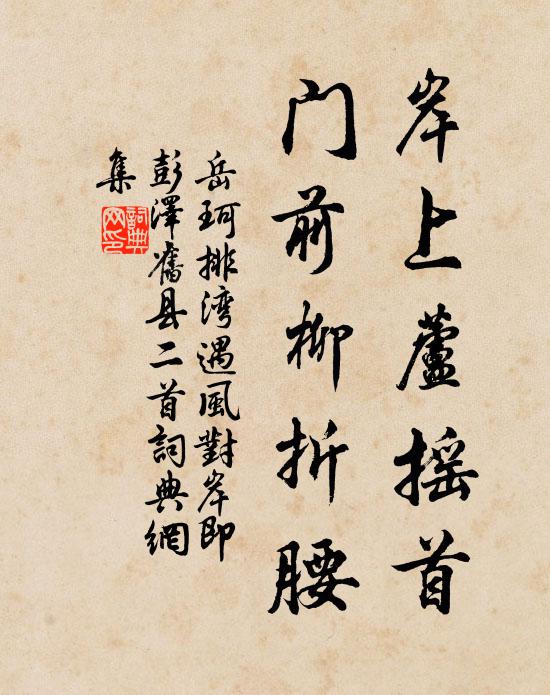 岸上蘆摇首
门前柳折腰
岳珂排湾遇風對岸即
彭澤舊县二首詞典網
集
詞典
网印